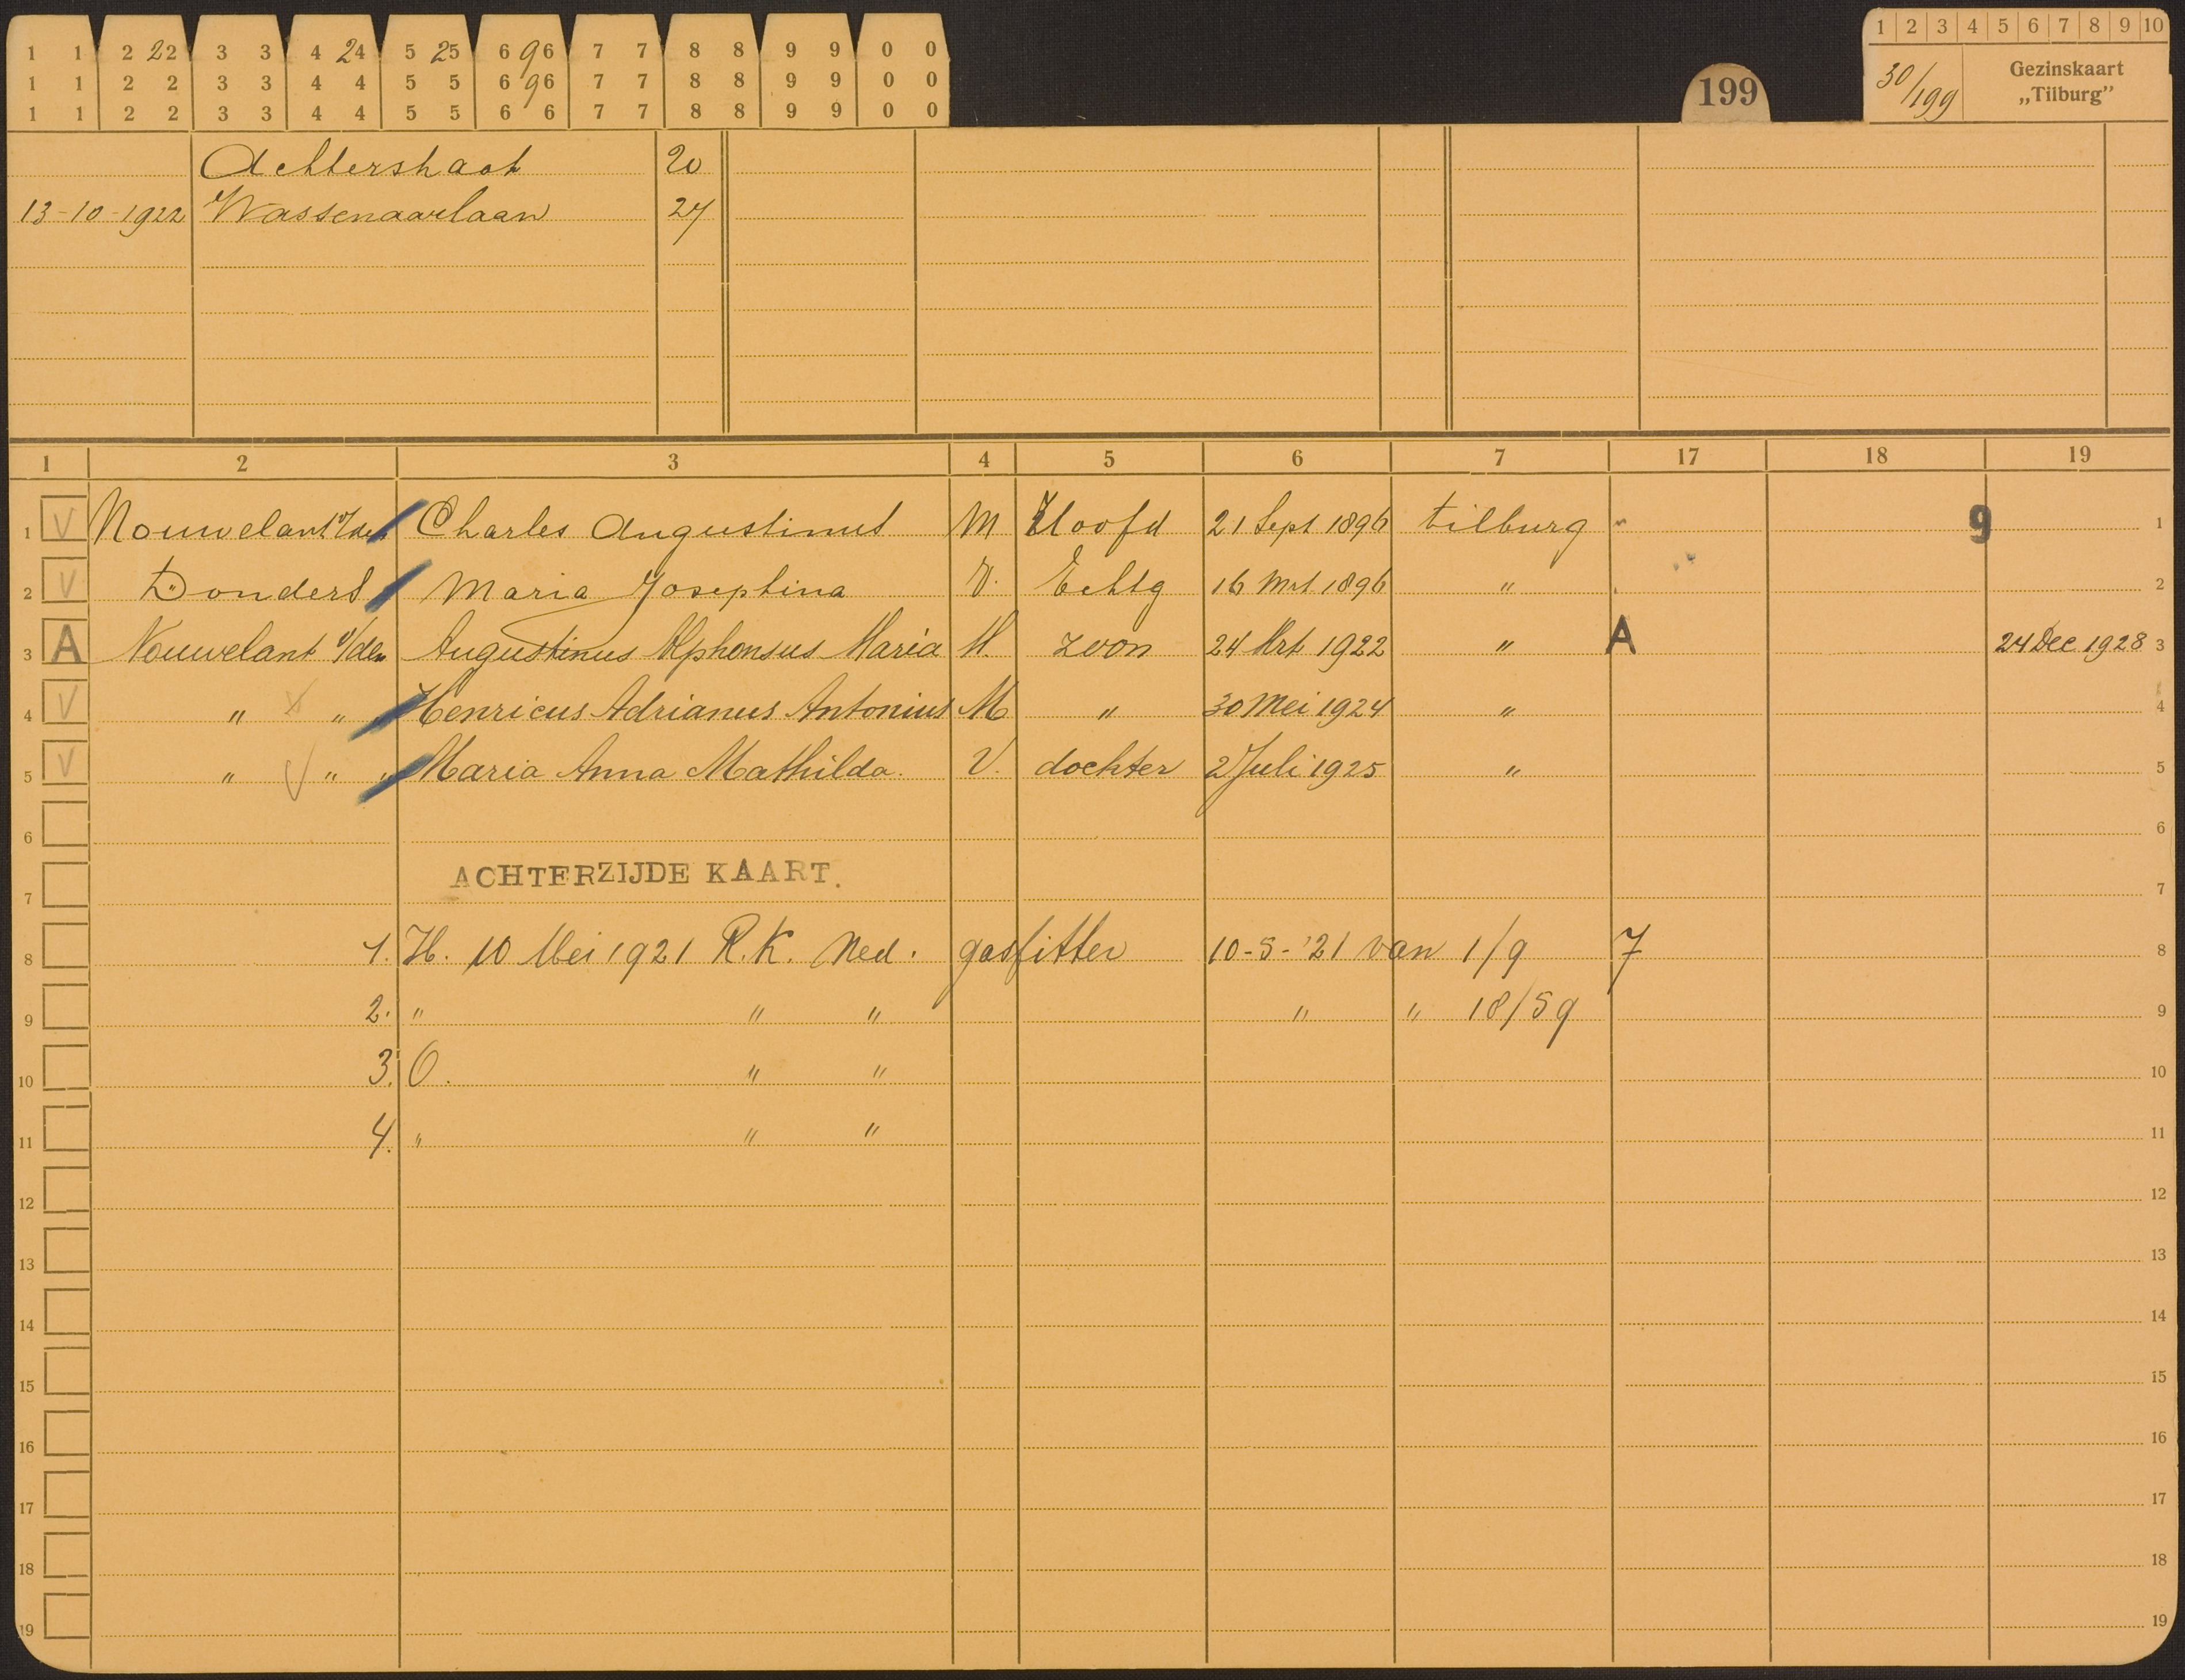 1 1 2 22 2 3 3 4 24 4 5 25 5 6 9 6 7 7 8 8 9 9 0 0
1 1 2 2 3 3 4 4 5 5 6 9 6 7 7 8 8 9 9 0 0
1 1 2 2 3 3 4 4 5 5 6 6 7 7 8 8 9 9 0 0
199
1 2 3 4 5 6 7 8 9 10
30/199 Gezinskaart
„Tilburg"
Achterstraat 20
13-10-1922 Wassenaarlaan 27
1 2 3 4 5 6 7 17 18 19
1 V Nouwelant v/den Charles Augustinus M Hoofd 21 Sept 1896 Tilburg 9 1
2 V Donders Maria Josephina V. Echtg 16 Mrt 1896 " 2
3 A Nouwelant v/den Augustinus Alphonsus Maria M. zoon 24 Mrt 1922 " A 24 Dec 1928 3
4 V " " Henricus Adrianus Antonius M " 30 Mei 1924 " 4
5 V " " " Maria Anna Mathilda. V. dochter 2 Juli 1925 " 5
6 6
ACHTERZIJDE KAART.
7 7
8 1. H. 10 Mei 1921 R.K. Ned. gasfitter 10-5-'21 van 1/9 7 8
9 2. " " " " " 18/59 9
10 3. O. " " 10
11 4. " " " 11
12 12
13 13
14 14
15 15
16 16
17 17
18 18
19 19